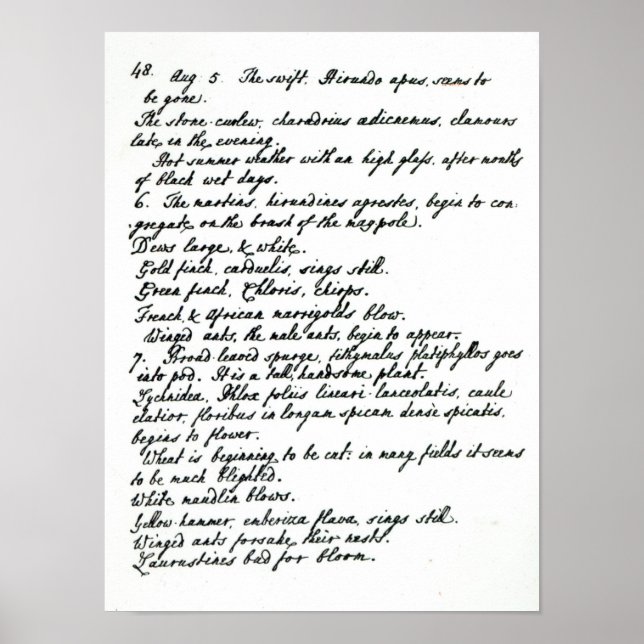 48. Aug 5. The swift, Hirundo apus, seems to
be gone.
The stone-curlew, charadrius œdicnemus, clamours
late in the evening.
Hot summer weather with an high glass, after months
of black wet days.
6. The martins, hirundines agrestes, begin to con-
gregate on the brash of the maypole.
Dews large, & white.
Gold finch, carduelis, sings still.
Green finch, Chloris, chirps.
French, & African marrigolds blow.
Winged ants, the male ants, begin to appear.
7. Broad leaved spurge, tithymalus platiphyllos goes
into pod. It is a tall, handsome plant.
Lychnidea, Phlox foliis lineari-lanceolatis, caule
elatior, floribus in longam spicam dense spicatis,
begins to flower.
Wheat is beginning to be cut: in many fields it seems
to be much blighted.
White maudlin blows.
Yellow-hammer, emberiza flava, sings still.
Winged ants forsake their nests.
Laurustines bud for bloom.